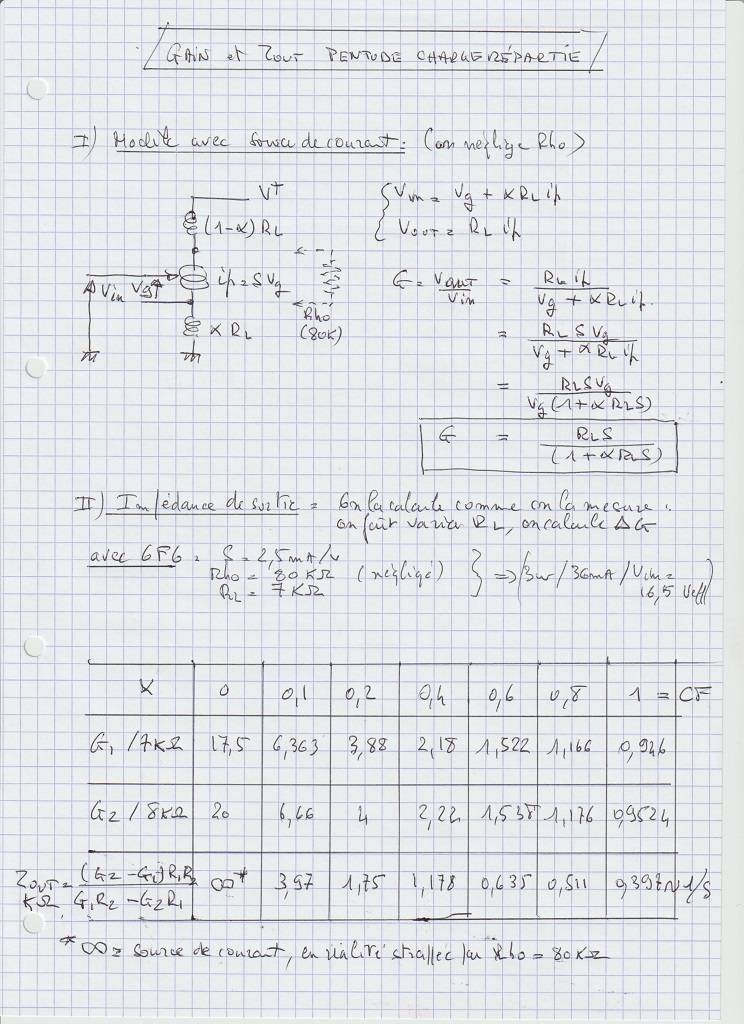 GAIN et ZOUT PENTODE CHARGE RÉPARTIE
I) Modèle avec source de courant : (on néglige Rho)
V+
(1-α) RL
Vin
Vg
ip = S Vg
Rho
(80K)
α RL
{ Vin = Vg + α RL ip
{ VOUT = RL ip
G = Vout / Vin = RL ip / (Vg + α RL ip)
= RL S Vg / (Vg + α RL ip)
= RL S Vg / (Vg (1 + α RL S))
G = RL S / (1 + α RL S)
II) Impédance de sortie = On la calcule comme on la mesure :
on fait varier RL, on calcule ΔG
avec 6F6 : S = 2,5 mA/V
Rho = 80 KΩ (négligé)
RL = 7 KΩ
} => (3W / 36mA / Vin = 16,5 Veff)
α 0 0,1 0,2 0,4 0,6 0,8 1 = CF
G1 / 7KΩ 17,5 6,363 3,88 2,18 1,522 1,166 0,946
G2 / 8KΩ 20 6,66 4 2,22 1,538 1,176 0,9524
ZOUT = (G2 - G1) R1 R2 / (G1 R2 - G2 R1) KΩ ∞* 3,97 1,75 1,178 0,635 0,511 0,397 ~ 1/S
* ∞ = source de courant, en réalité shuntée par Rho = 80 KΩ